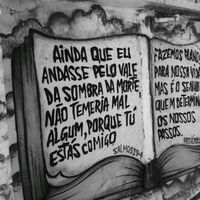 AINDA QUE EU
ANDASSE PELO VALE
DA SOMBRA DA MORTE,
NÃO TEMERIA MAL
ALGUM, PORQUE TÚ
ESTÁS COMIGO
SALMOS 23:4
FAZEMOS PLANOS
PARA NOSSA VIDA
MAS É O SENHOR
QUEM DETERMINA
OS NOSSOS
PASSOS.